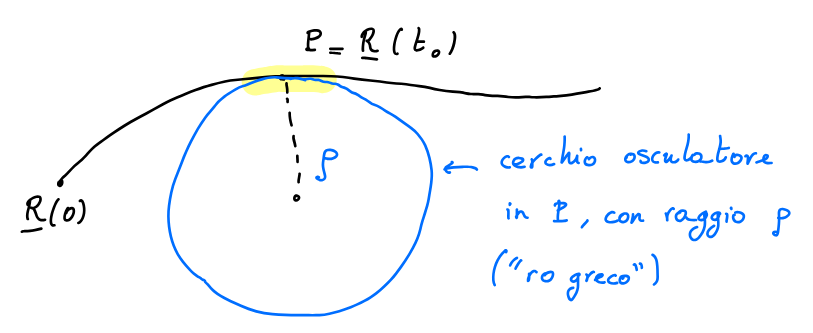 P = R(t₀)
R(0)
ρ
← cerchio osculatore
in P, con raggio ρ
("ro greco")